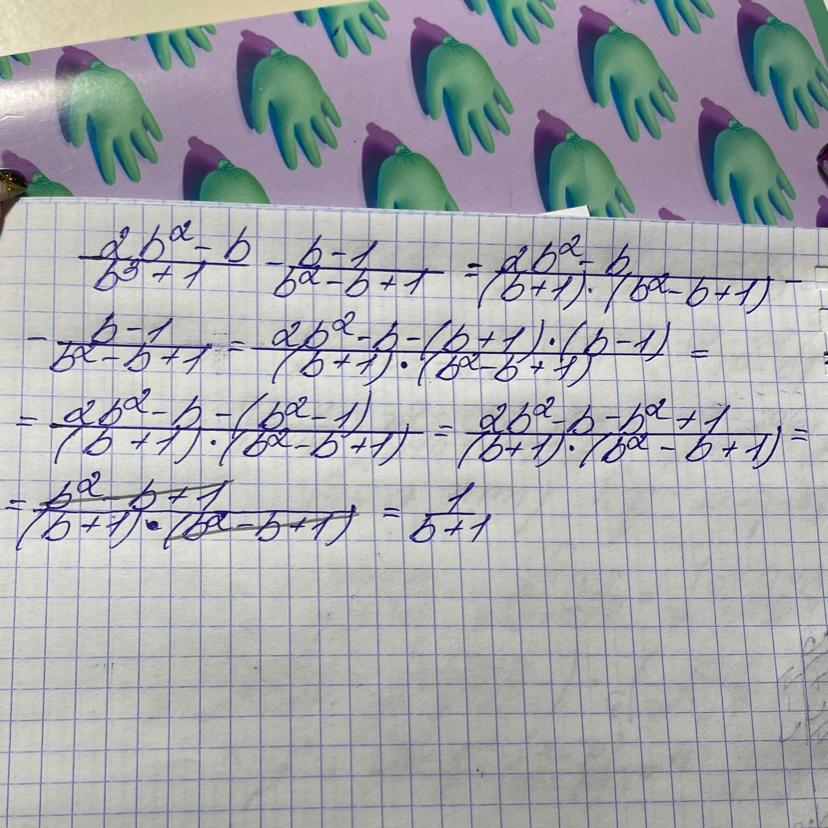 (2b² - b)/(b³ + 1) - (b - 1)/(b² - b + 1) = (2b² - b)/((b+1)·(b² - b + 1)) -
- (b - 1)/(b² - b + 1) = (2b² - b - (b+1)·(b - 1))/((b+1)·(b² - b + 1)) =
= (2b² - b - (b² - 1))/((b+1)·(b² - b + 1)) = (2b² - b - b² + 1)/((b+1)·(b² - b + 1)) =
= (b² - b + 1)/((b+1)·(b² - b + 1)) = 1/(b+1)